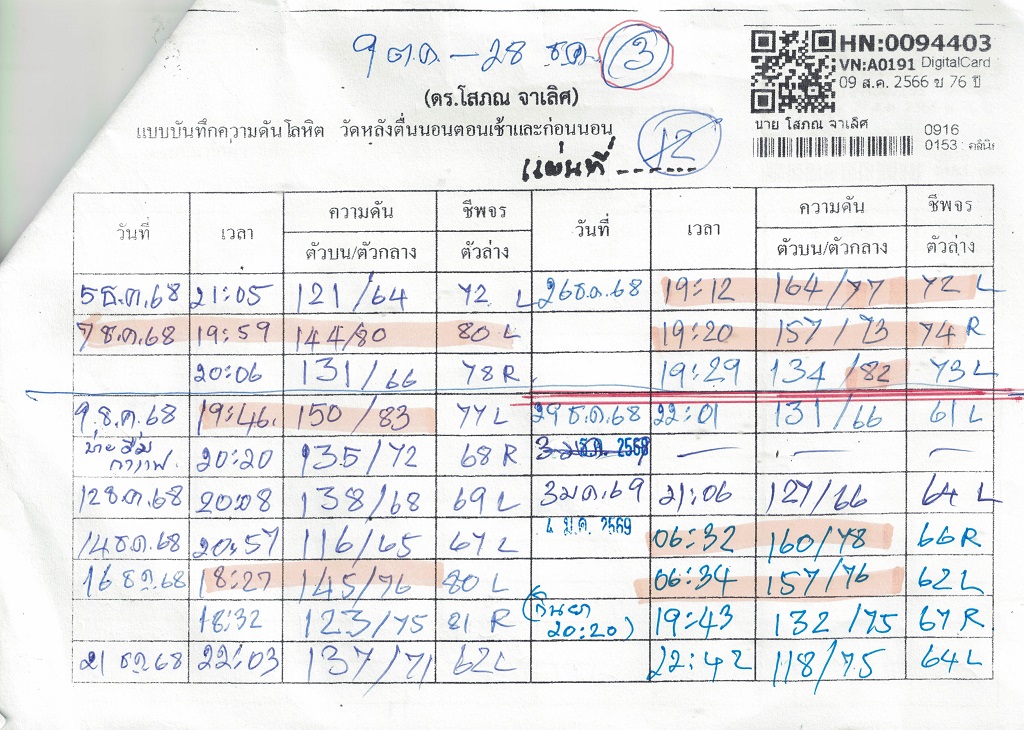 9 ต.ค. - 28 ธ.ค. 3
HN:0094403
VN:A0191 DigitalCard
09 ส.ค. 2566 ช 76 ปี
นาย โสภณ จาเลิศ
0916
0153 : คลินิ
(ดร.โสภณ จาเลิศ)
แบบบันทึกความดันโลหิต วัดหลังตื่นนอนตอนเช้าและก่อนนอน
แผ่นที่ ...... 12
วันที่ เวลา ความดัน ชีพจร วันที่ เวลา ความดัน ชีพจร
ตัวบน/ตัวกลาง ตัวล่าง ตัวบน/ตัวกลาง ตัวล่าง
5 ธ.ค.68 21:05 121/64 72 L 26 ธ.ค.68 19:12 164/77 72 L
7 ธ.ค.68 19:59 144/80 80 L 19:20 157/73 74 R
20:06 131/66 78 R 19:29 134/82 73 L
9.ธ.ค.68 19:46. 150/83 77 L 29 ธ.ค.68 22:01 131/66 61 L
บ่ายดื่ม
กาแฟ. 20:20 135/72 68 R ธ.ค. 2568 — . — —
12 ธ.ค.68 20:08 138/68 69 L 3 ม.ค.69 21:06 127/66 64 L
14 ธ.ค.68 20:57 116/65 67 L 4 ม.ค. 2569 06:32 160/78 66 R
16 ธ.ค.68 18:27 145/76 80 L 06:34 157/76 62 L
18:32 123/75 81 R (กินยา 20:20) 19:43 132/75 67 R
21 ธ.ค.68 22:03 137/71 62 L 22:42 118/75 64 L